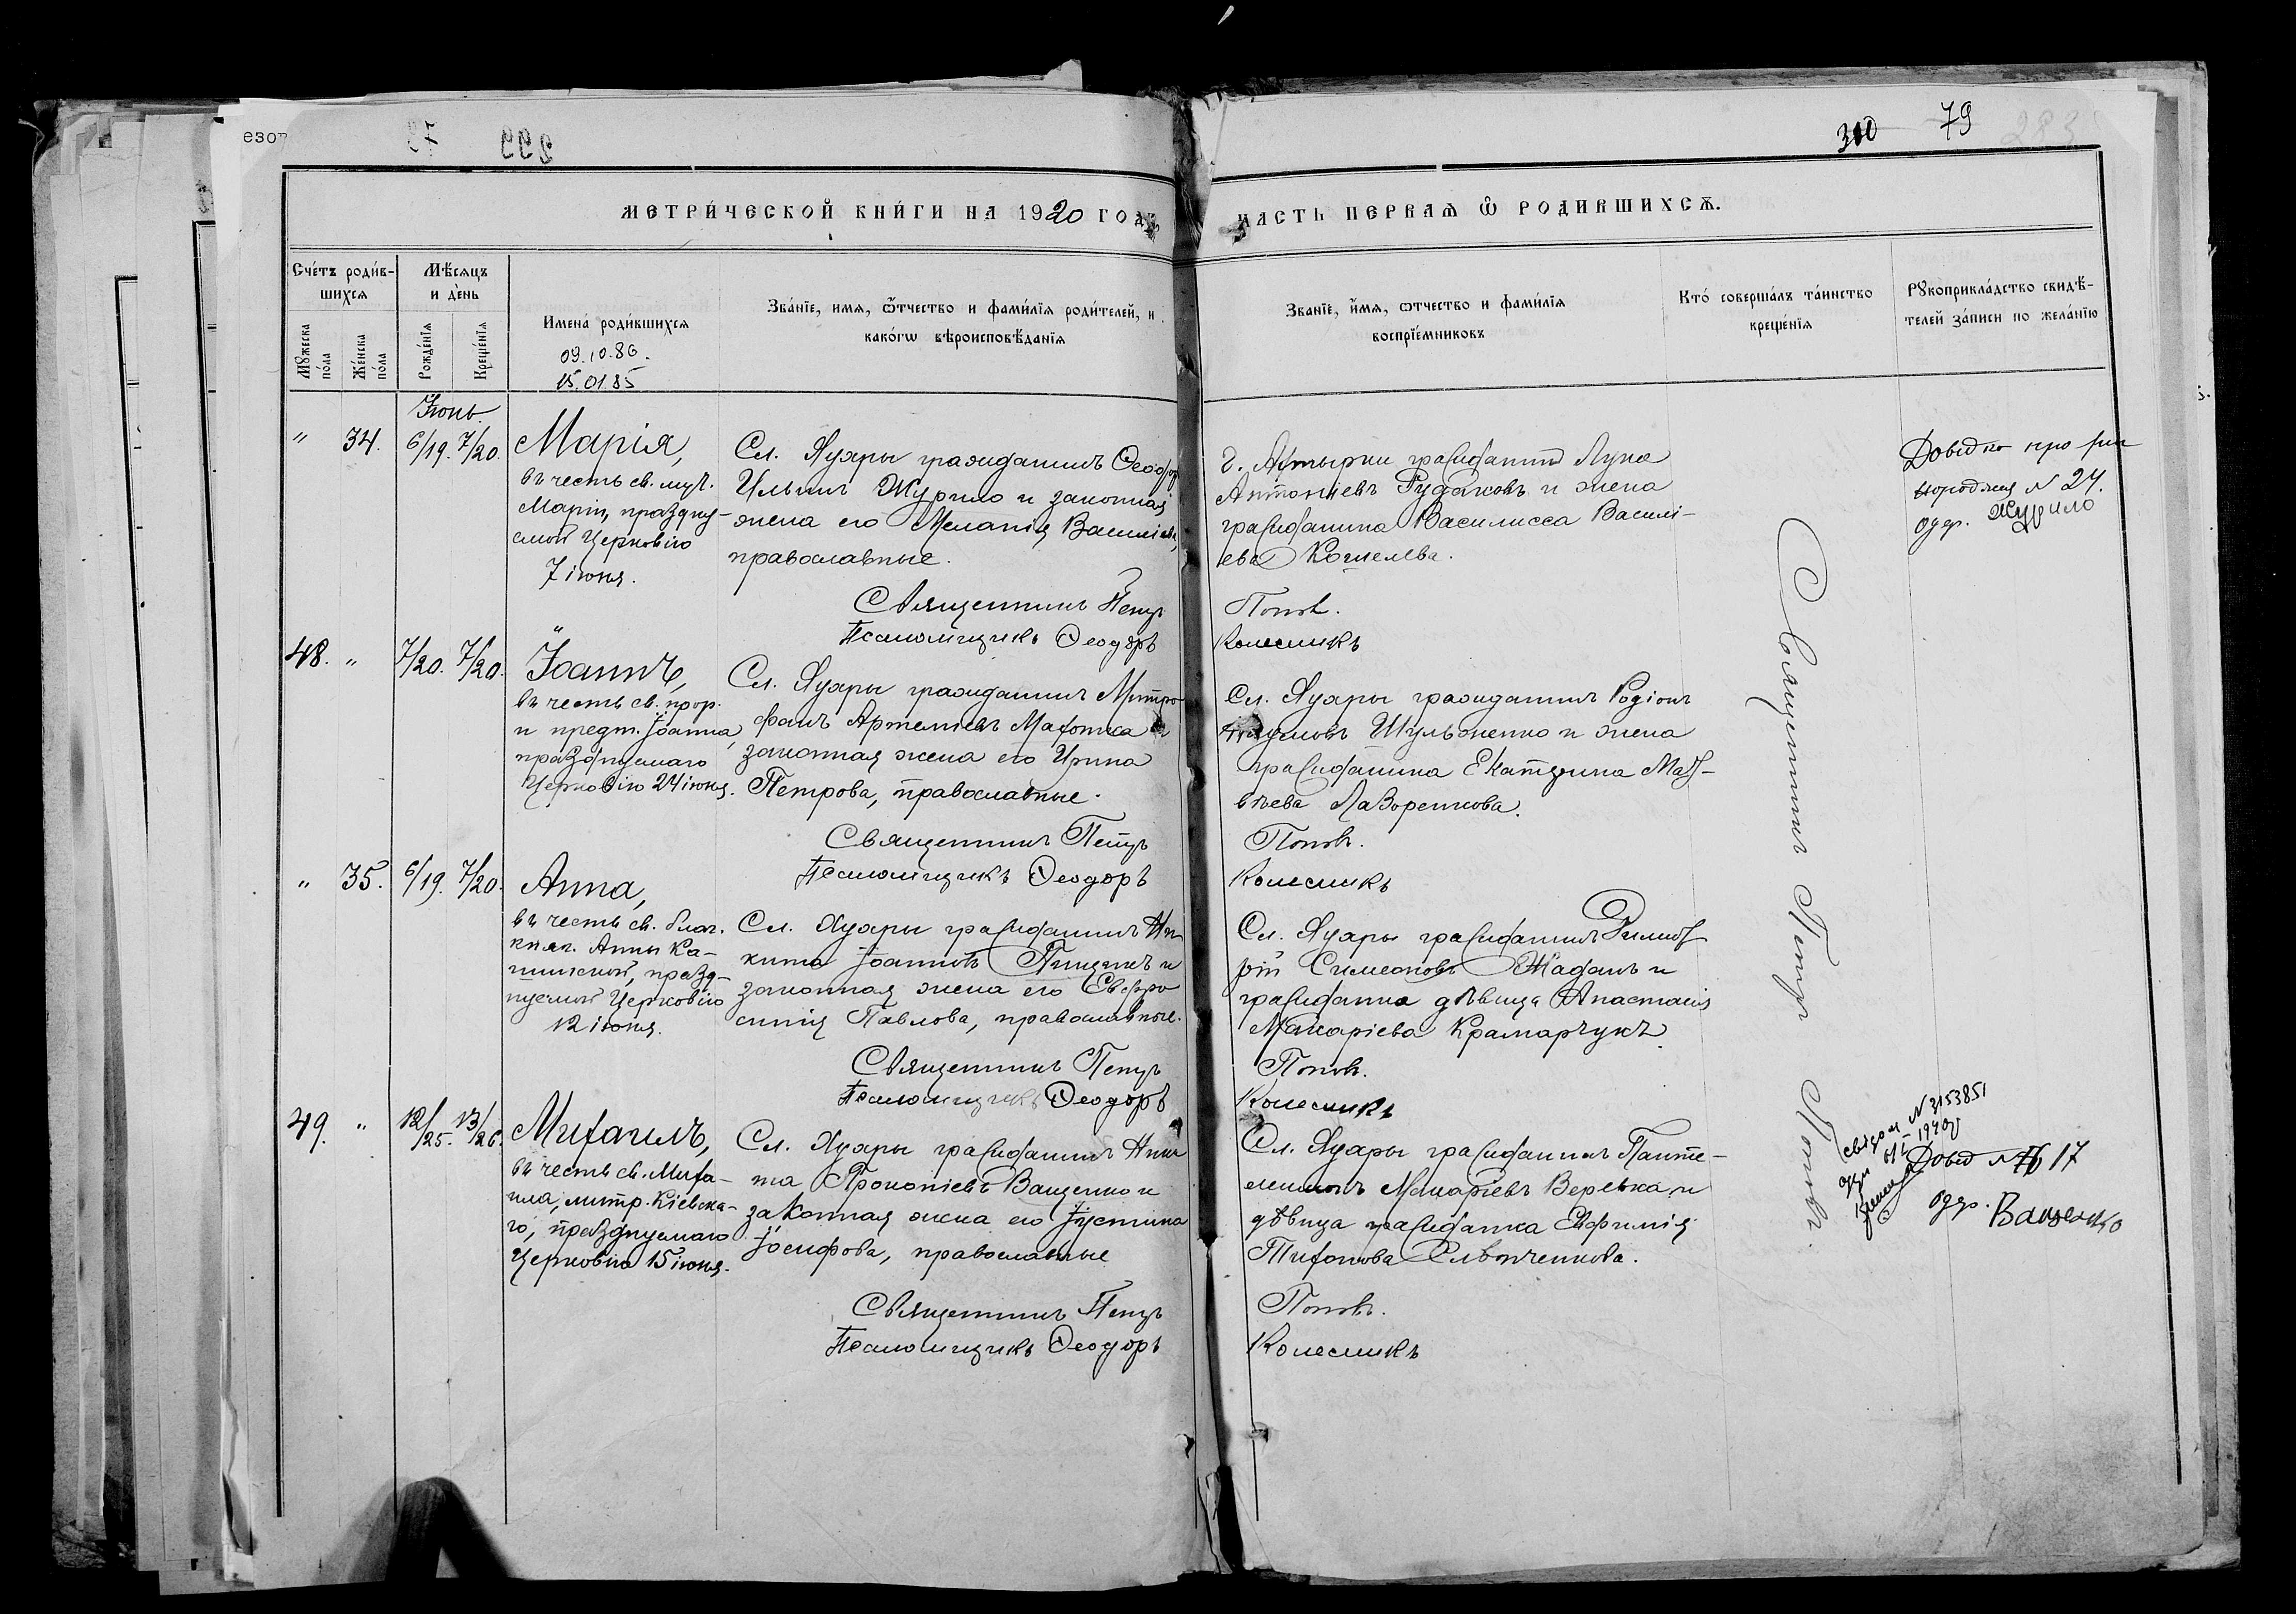 300 79
МЕТРИ́ЧЕСКОЙ КНИ́ГИ НА 1920 ГОДЪ
ЧАСТЬ ПЕРВАѦ Ѽ РОДИВШИХСѦ.
Сче́тъ роди́в-
шихсѧ
Мѣ́сѧцъ
и де́нь
Мꙋ́жеска по́ла
Же́нска по́ла
Рожде́нїѧ
Креще́нїѧ
Имена́ роди́вшихсѧ
09.10.86.
15.01.85
Зва́нїе, имѧ, ѻ҆́тчество и фами́лїѧ роди́телей, и
како́гѡ вѣроисповѣ́данїѧ
Зва́нїе, и҆́мѧ, ѻтчество и фами́лїѧ
воспрїе́мниковъ
Кто́ соверша́лъ та́инство
креще́нїѧ
Рꙋкоприкла́дство свидѣ́-
телей за́писи по жела́нїю
Іюнь.
" 34. 6/19. 7/20.
Марія,
въ честь св. муч.
Маріи, праздну-
емой Церковію
7 іюня.
Сл. Яуары гражданинъ Ѳеодоръ
Ильинъ Журило и законная
жена его Меланія Василіева,
православные.
Священникъ Петръ
Псаломщикъ Ѳеодоръ
г. Ахтырки гражданинъ Лука
Антоніевъ Рудаковъ и жена
гражданина Василисса Василі-
ева Кошелева.
Поповъ.
Колесникъ
Довідка про
народжен N 24.
одер. Журило
48. " 7/20. 7/20.
Іоаннъ,
въ честь св. прор.
и предт. Іоанна,
празднуемаго
Церковію 24 іюня.
Сл. Яуары гражданинъ Митро-
фанъ Артеміевъ Махотка и
законная жена его Ирина
Петрова, православные.
Священникъ Петръ
Псаломщикъ Ѳеодоръ
Сл. Яуары гражданинъ Родіонъ
Шульженко и жена
гражданина Екатерина Мат-
вѣева Лаворенкова.
Поповъ.
Колесникъ
" 35. 6/19. 7/20.
Анна,
въ честь св. благ.
княг. Анны Ка-
шинской, празд-
нуемой Церковію
12 іюня.
Сл. Яуары гражданинъ Ни-
кита Іоанновъ Пищикъ и
законная жена его Евфро-
синія Павлова, православные.
Священникъ Петръ
Псаломщикъ Ѳеодоръ
Сл. Яуары гражданинъ Димит-
рій Симеоновъ Жаданъ и
гражданка дѣвица Анастасія
Макаріева Крамарчукъ.
Поповъ.
Колесникъ
49. " 12/25. 13/26.
Михаилъ,
въ честь св. Миха-
ила, митр. Кіевска-
го, празднуемаго
Церковію 15 іюня.
Сл. Яуары гражданинъ Ники-
та Прокопіевъ Ващенко и
законная жена его Іустина
Іосифова, православные
Священникъ Петръ
Псаломщикъ Ѳеодоръ
Сл. Яуары гражданинъ Панте-
леимонъ Макаріевъ Веревка и
дѣвица гражданка Евфимія
Тихонова Слѣпченкова.
Поповъ.
Колесникъ
N 3153851
Довід N 17
одер. Ващенко
Священникъ Петръ Поповъ.